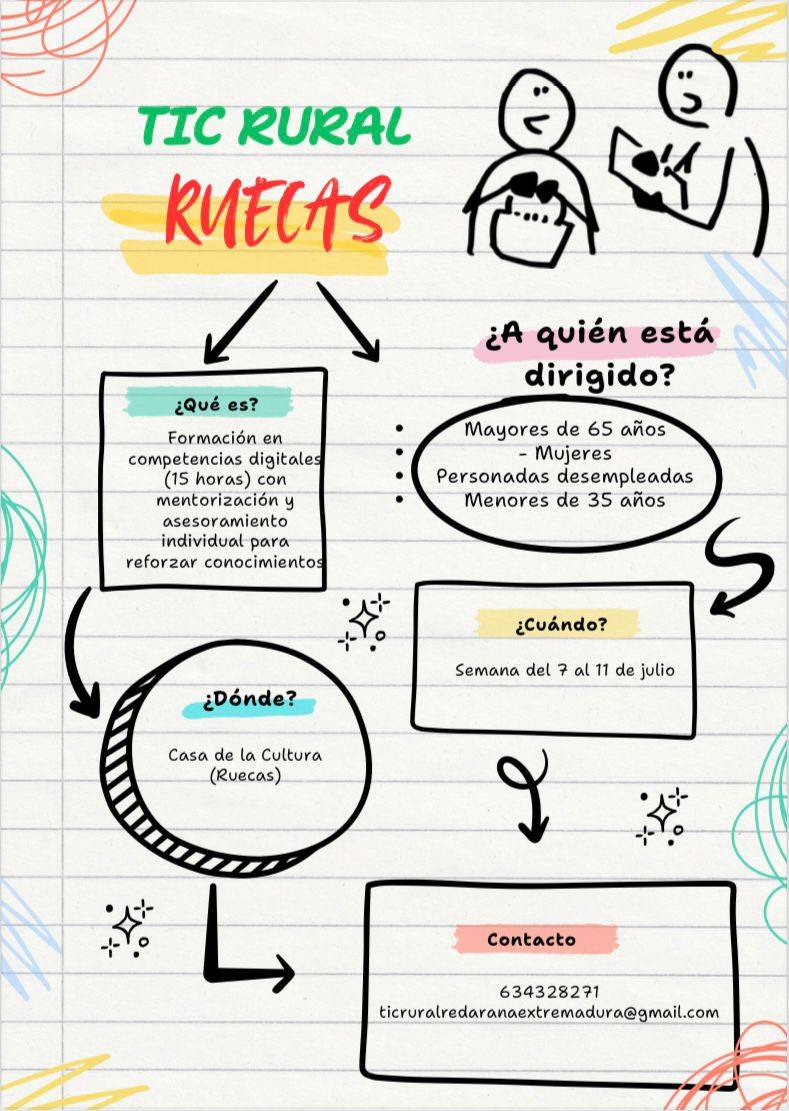 TIC RURAL
RUECAS
¿Qué es?
Formación en
competencias digitales
(15 horas) con
mentorización y
asesoramiento
individual para
reforzar conocimientos
¿A quién está
dirigido?
• Mayores de 65 años
• - Mujeres
• Personadas desempleadas
• Menores de 35 años
¿Cuándo?
Semana del 7 al 11 de julio
¿Dónde?
Casa de la Cultura
(Ruecas)
Contacto
634328271
ticruralredaranaextremadura@gmail.com